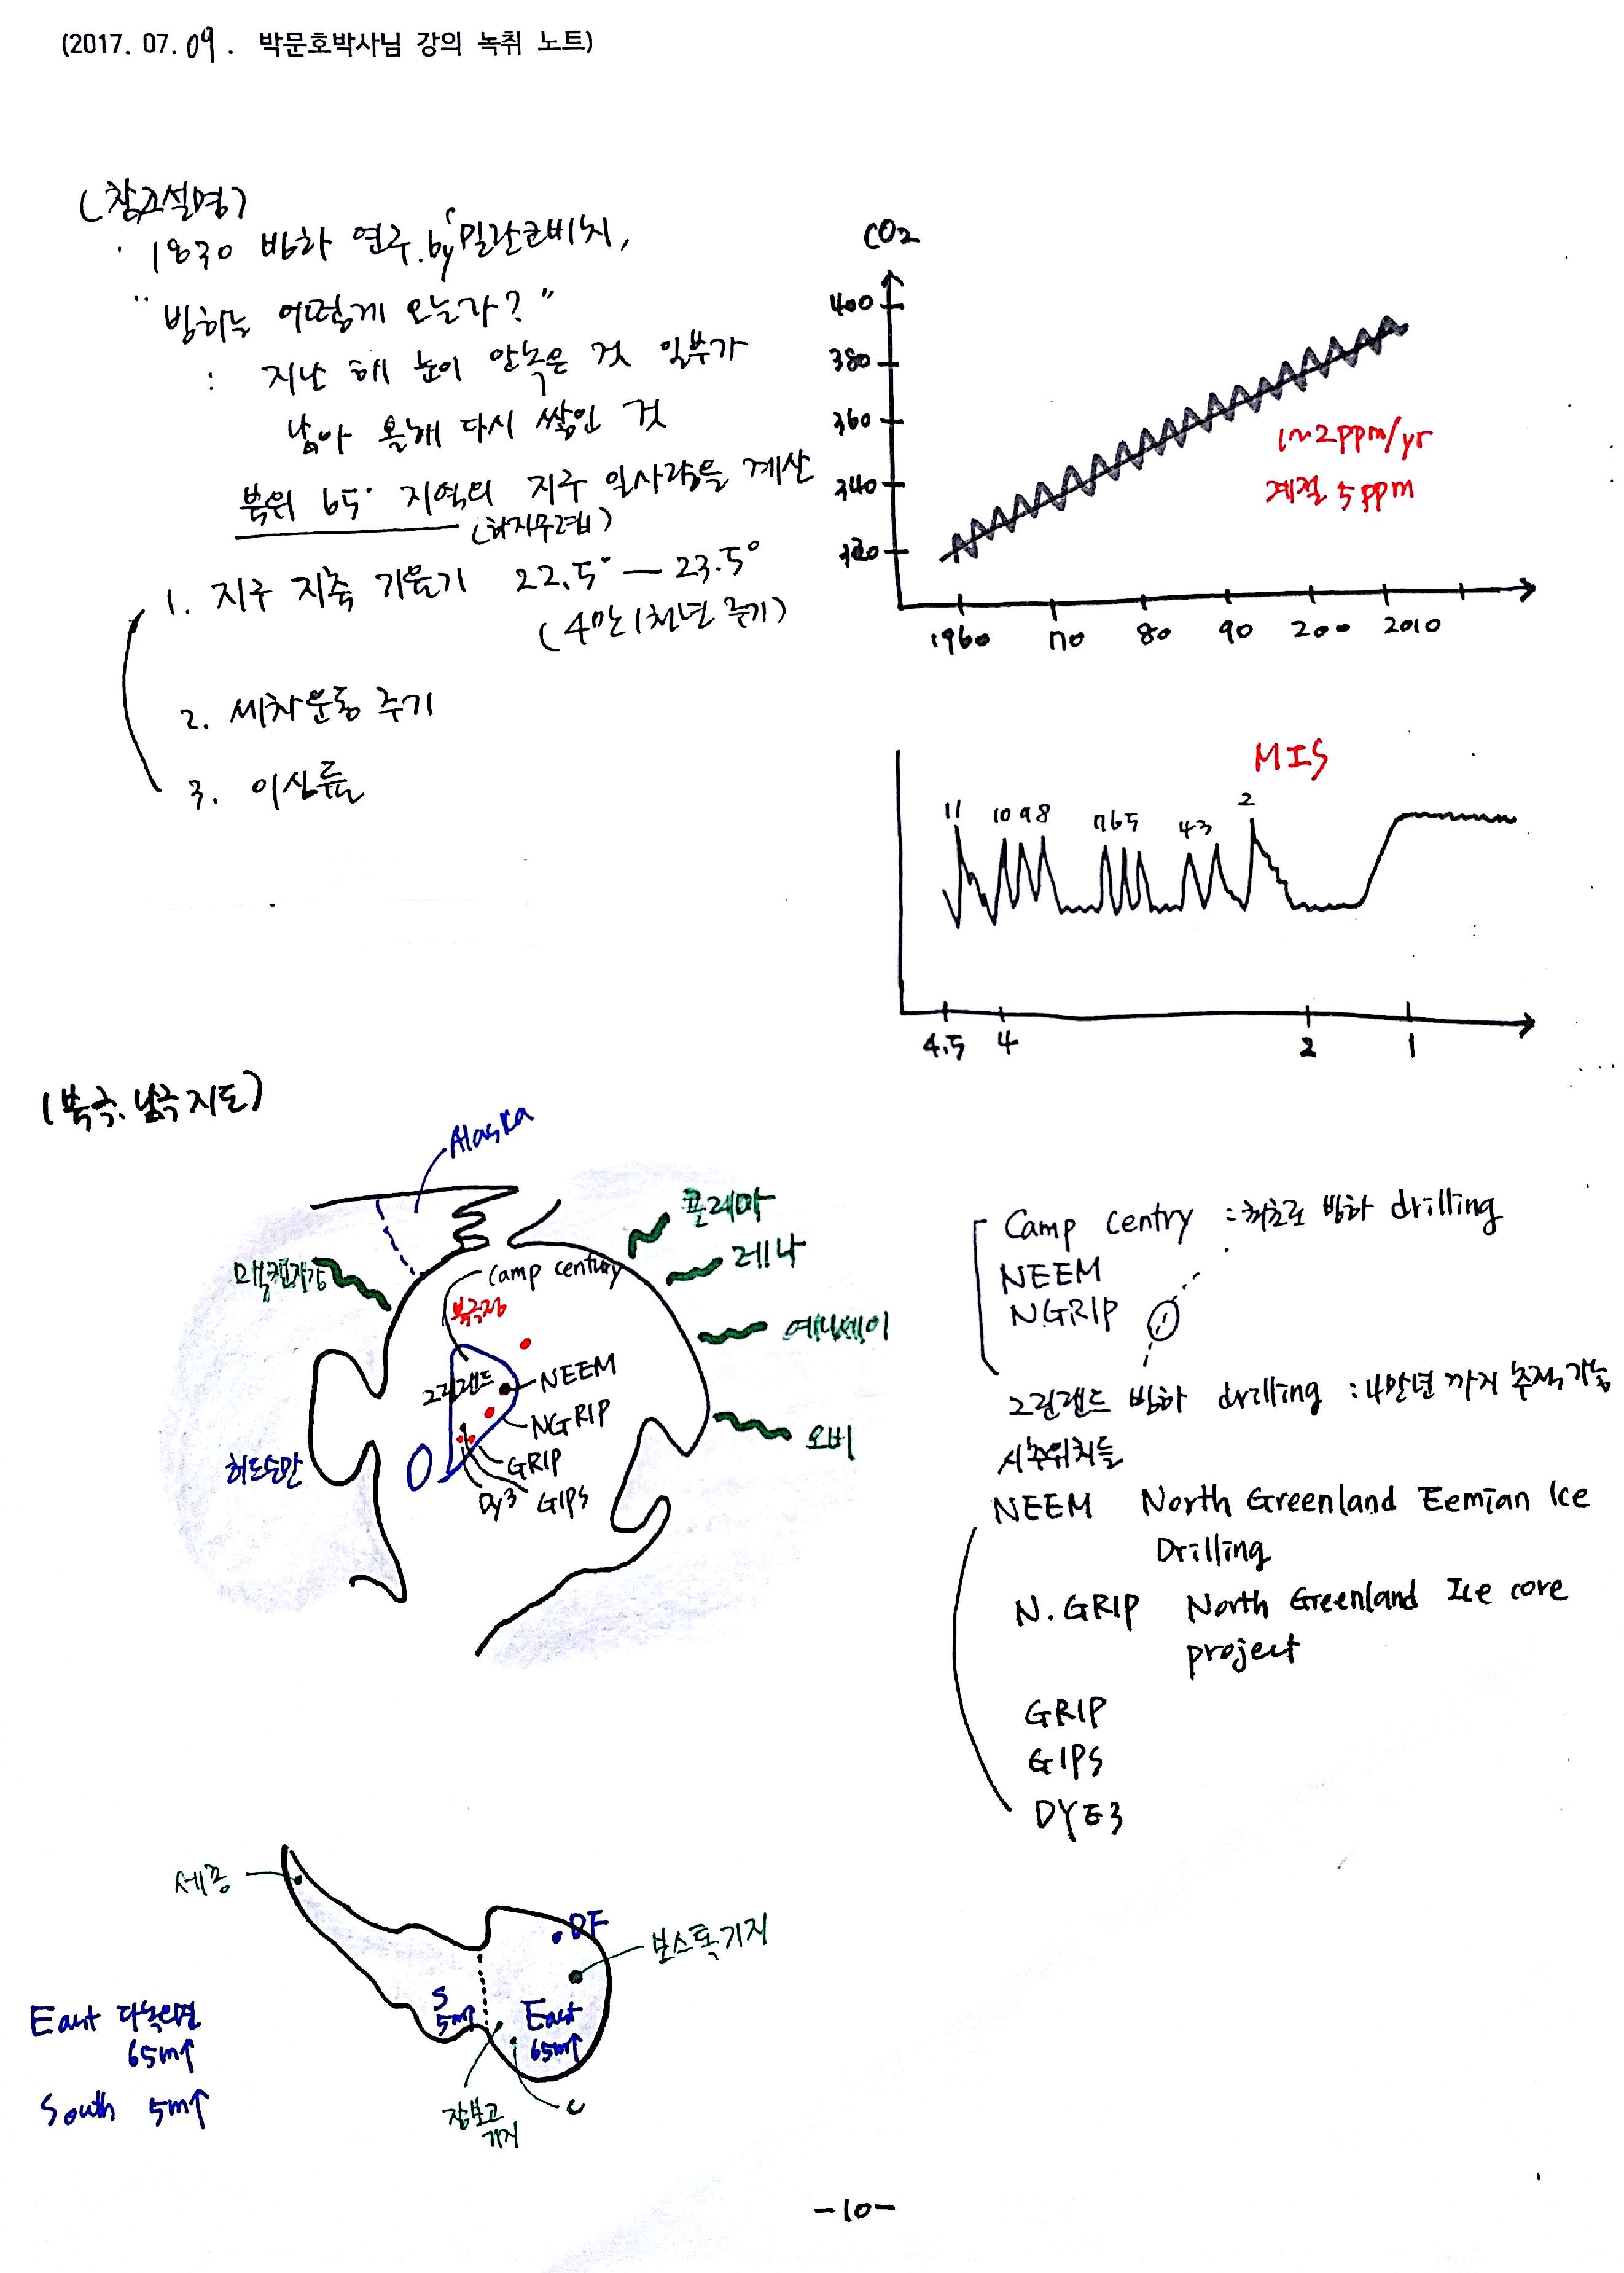 (2017. 07. 09. 박문호박사님 강의 녹취 노트)
(참고설명)
· 1830 빙하 연구. by 밀란코비치,
"빙하는 어떻게 오는가?"
: 지난 해 눈이 안녹은 것 일부가
남아 올해 다시 쌓인 것
북위 65° 지역의 지구 일사량을 계산
(하지무렵)
1. 지구 지축 기울기 22.5° — 23.5°
(4만1천년 주기)
2. 세차운동 주기
3. 이심률
CO2
400
380
360
340
320
1~2ppm/yr
계절 5ppm
1960 70 80 90 2000 2010
MIS
11 10 9 8 7 6 5 4 3 2
4.5 4 2 1
(북극, 남극 지도)
Alaska
콜레마
레나
맥켄지강
Camp century
북극점
예니세이
그린랜드
NEEM
NGRIP
오비
허드슨만
GRIP
Dy3 GIPS
Camp Centry : 최초로 빙하 drilling
NEEM
NGRIP
그린랜드 빙하 drilling : 4만년 까지 추적가능
시추위치들
NEEM North Greenland Eemian Ice
Drilling
N.GRIP North Greenland Ice core
project
GRIP
GIPS
DYE3
세종
DF
보스톡기지
S
5m↑
East
65m↑
장보고
기지
C
East 다녹으면
65m↑
South 5m↑
-10-